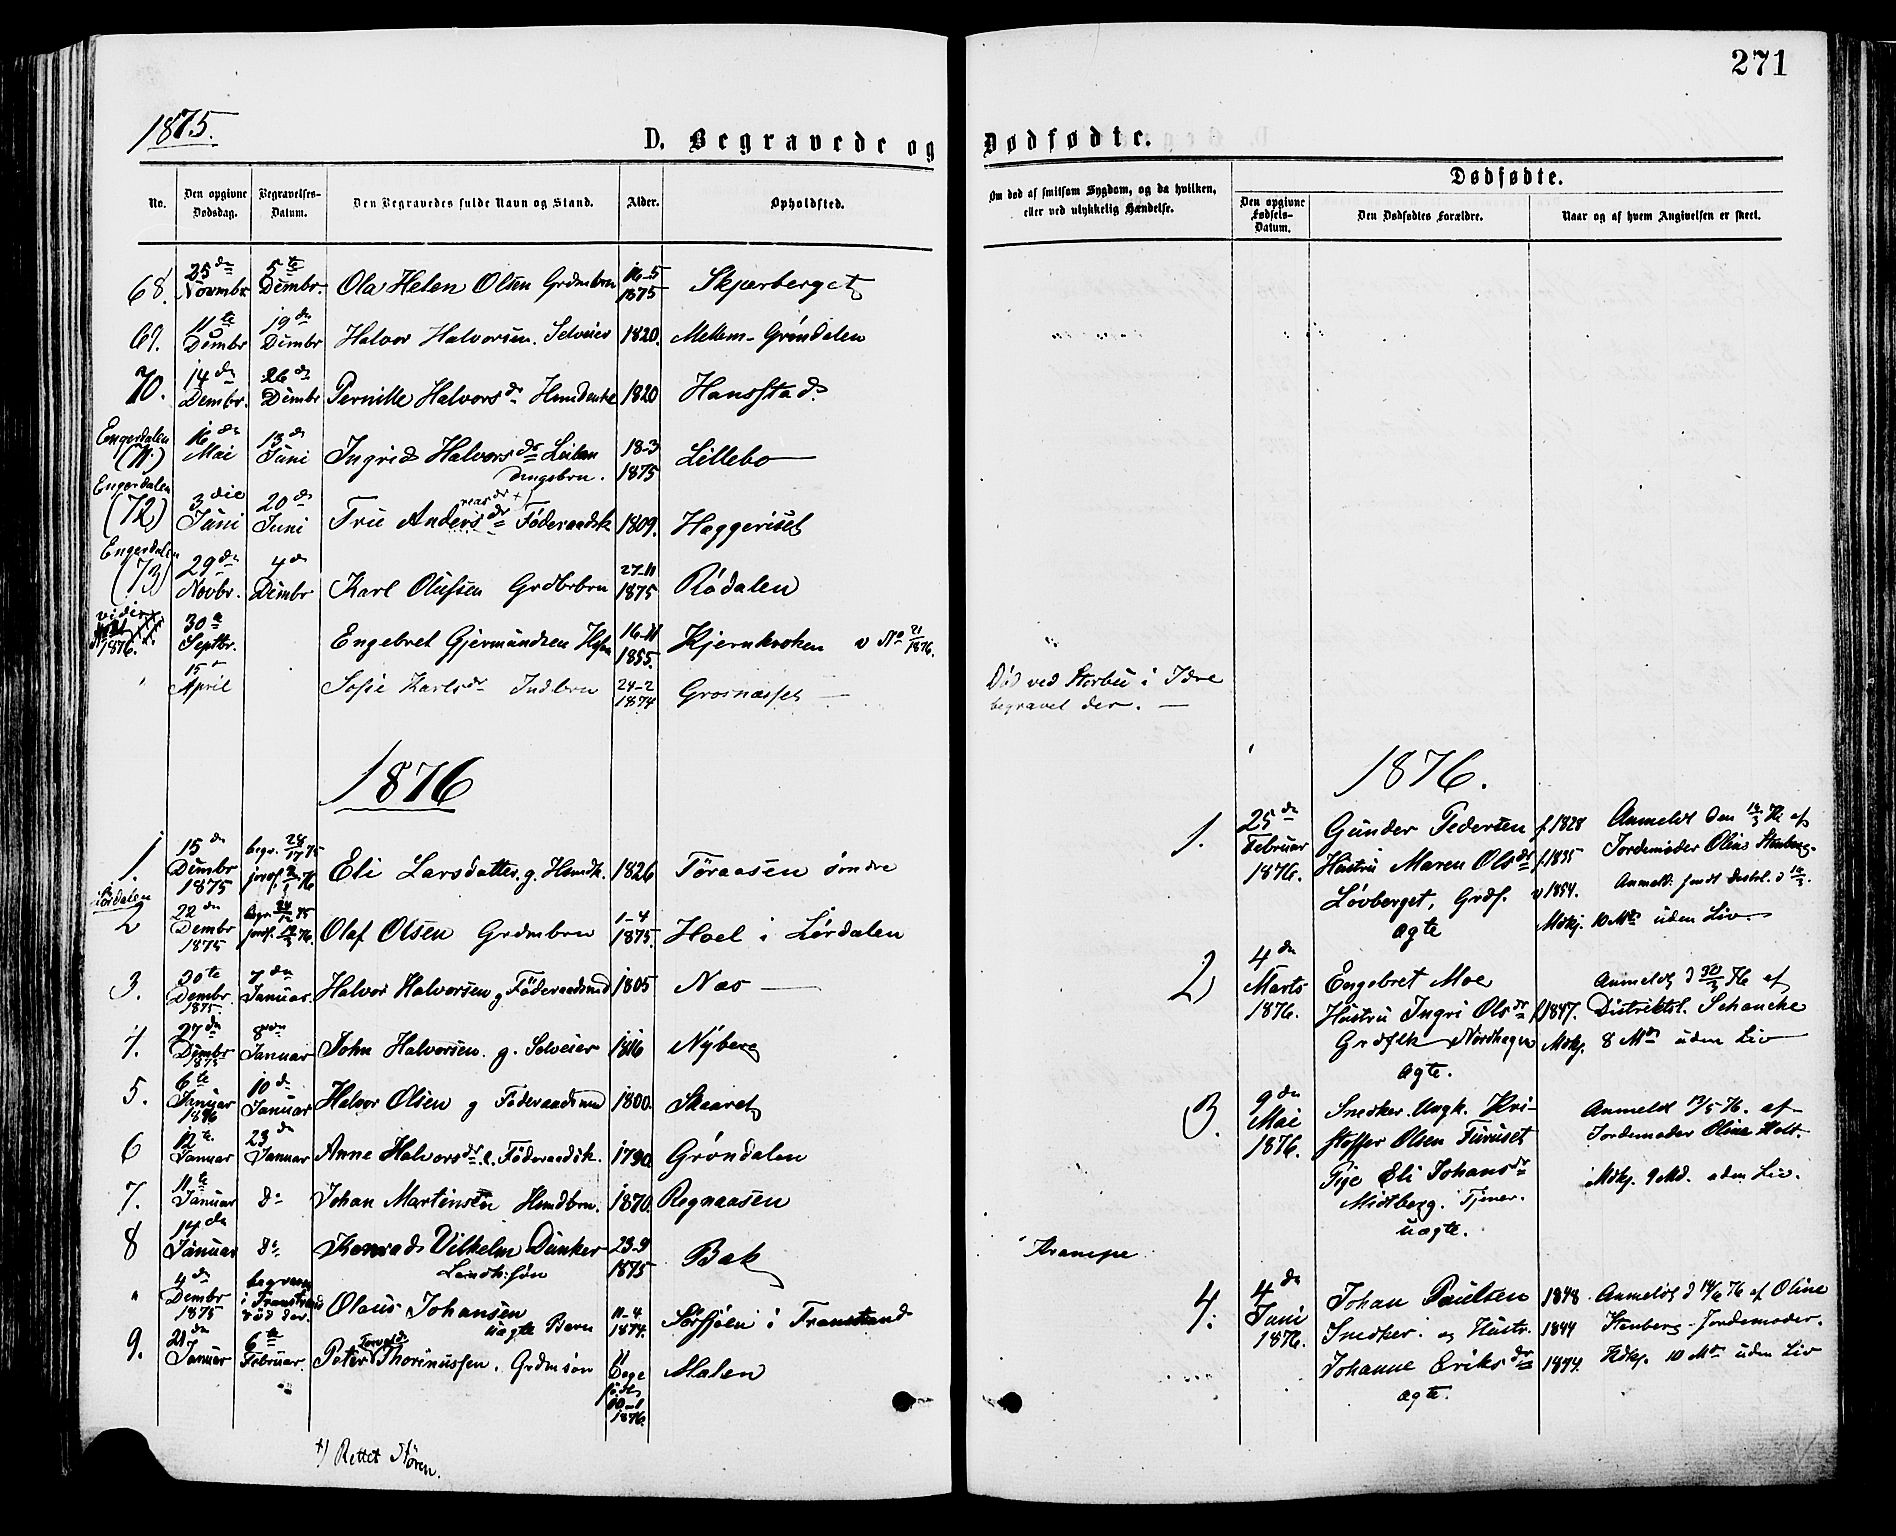 271
1875.
D. Begravede og Dødfødte.
No. Den opgivne Dødsdag. Begravelses-Datum. Den Begravedes fulde Navn og Stand. Alder. Opholdsted.
Om død af smitsom Sygdom, og da hvilken, eller ved ulykkelig Hændelse.
Dødfødte.
Den opgivne Fødsels-Datum. Den Dødfødtes Forældre. Naar og af hvem Angivelsen er skeet.
68. 25de Novmbr 5te Dcmbr. Ola Helen Olsen Grdmbrn 16-5 1875 Skjærberget
69. 11te Dcmbr 19de Dcmbr Halvor Halvorsen. Selveier 1820. Mellem-Gröndalen
70. 14de Dembr. 26de Dcmbr Pernille Halvorsdr 1820 Hansstad
Engerdalen (71.) 16de Mai 13de Juni Ingrid Halvorsdr Leilendingsbrn. 18-3 1875 Lillebo
Engerdalen (72) 3die Juni 20de Juni Tru Andersdr Föderaadsk 1809. Haggeriset
Engerdalen (73) 29de Novbr. 4de Dcmbr Karl Olufsen Grdbrbrn 27-11 1875 Rödalen
1876. 30te Septbr. Engebret Gjermundsen 16-11 1855. Kjernkroken v No 21/1876.
15de April Sofie Karlsdr Indbrn 24-2 1874 Grosnæsset
Död ved Storbu i Idre
begravet der.
1876
1. 15de Dcmbr 1875 begr. jordf. Eli Larsdatter. g. Hsmdk. 1826 Töraasen söndre
Lördalen
2 22de Dcmbr 1875 Begr. jordf. Olaf Olsen Grdmbrn 1-4 1875. Hoel i Lördalen
3. 30te Dcmbr. 1875. 7de Januar Halvor Halvorsen g Föderaadsmd 1805 Næs
4. 27de Dcmbr 1875 8de Januar John Halvorsen. g. Selveier 1816 Nyberg
5. 6te Januar 1876 10de Januar Halvor Olsen g Föderaadsmd 1800. Skaaret
6 12te Januar 23de Januar Anne Halvorsdr e. Föderaadsk. 1790. Gröndalen
7. 11te Januar do Johan Martinsen Hsmdbrn. 1870. Rognaasen
8 14de Januar do Konrad Vilhelm Dunker Landh: sön 23-9 1875 Bak
Krampe
" 4de Dcmbr 1875 begraven i Framstrand död der. Olaus Johansen uægte Barn 11-4 1874. Sörsjöen i Framstrand
9. 21de Januar 6te Februar. Peter Thorinussen. Grdmsön 11 Dage födt 10-1 1876. Malen
+) Rettet Stören.
1876.
1. 25de Februar 1876. Gunder Pedersen f. 1828
Hustru Maren Olsdr f. 1835
Lövberget, Grdf. v 1854.
ægte
Anmeldt den 16/3 76 af
Jordemoder Oline Stenberg.
Mdkj. 10 Mdr uden Liv
2) 4de Marts 1876. Engebret Moe
Hustru Ingri Olsdr f. 1847.
Grdflk Nordhagen
ægte.
Anmeldt d 20/3 76 af
Distriktsl. Schancke
Mdkj. 8 Mdr uden Liv
3. 9de Mai 1876. Snedker. Ungk. Kri-
stoffer Olsen Furuset
Pige Eli Johansdr
Midtberg. Tjener.
uægte.
Anmeldt 13/5 76. af
Jordemoder Oline Holt.
Mdkj. 9 Md. uden Liv.
4. 4de Juni 1876. Johan Paulsen 1848
Snedker. og Hustr. 1844
Johanne Eriksdr 1844.
ægte.
Anmeldt d 14/6 76 af Oline
Stenberg - Jordemoder.
Kdkj. 10 Mdr uden Liv